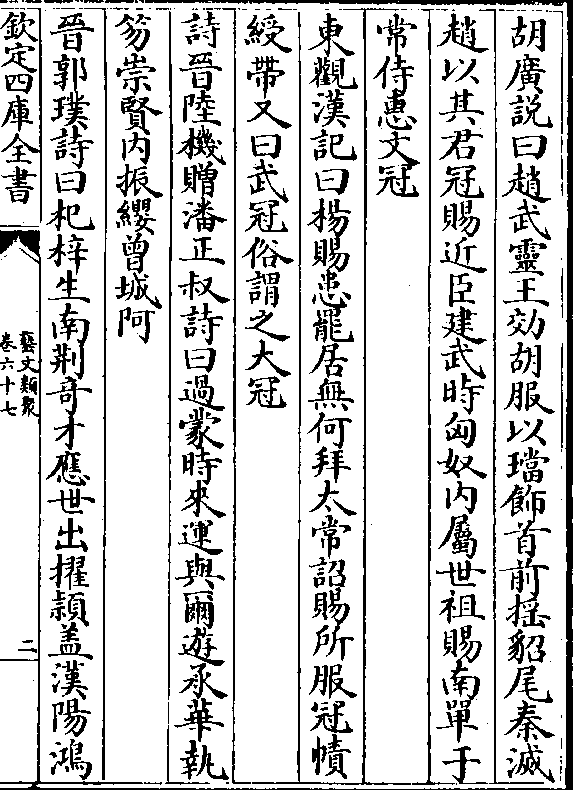 胡廣説曰趙武靈王効胡服以璫飾首前揺貂尾秦滅
趙以其君冠賜近臣建武時匈奴内屬世祖賜南單于
常侍惠文冠
東觀漢記曰楊賜患罷居無何拜太常詔賜所服冠幘
綬帶又曰武冠俗謂之大冠
詩晉陸機贈潘正叔詩曰過蒙時來運與爾遊承華執
笏崇賢内振纓曾城阿
晉郭璞詩曰杞梓生南荆竒才應世出擢頴盖漢陽鴻
欽定四庫全書
藝文類聚
卷六十七
二